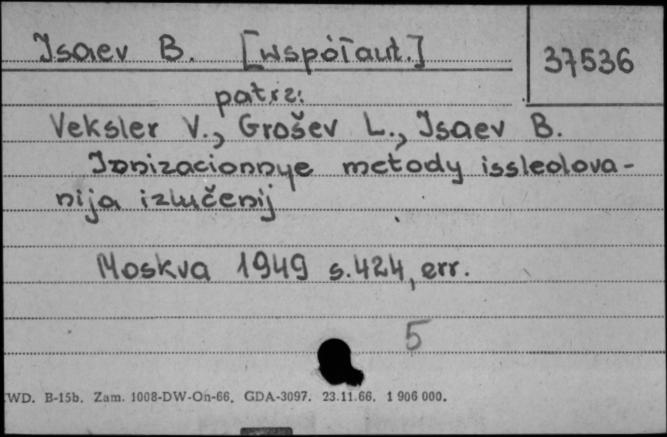 Isaev B. [współaut.]
37536
patrz:
Veksler V., Grošev L., Isaev B.
Ionizacionnye metody issledova-
nija izlučenij
Moskva 1949 s. 424, err.
5
WD. B-15b. Zam. 1008-DW-On-66. GDA-3097. 23.11.66. 1 906 000.